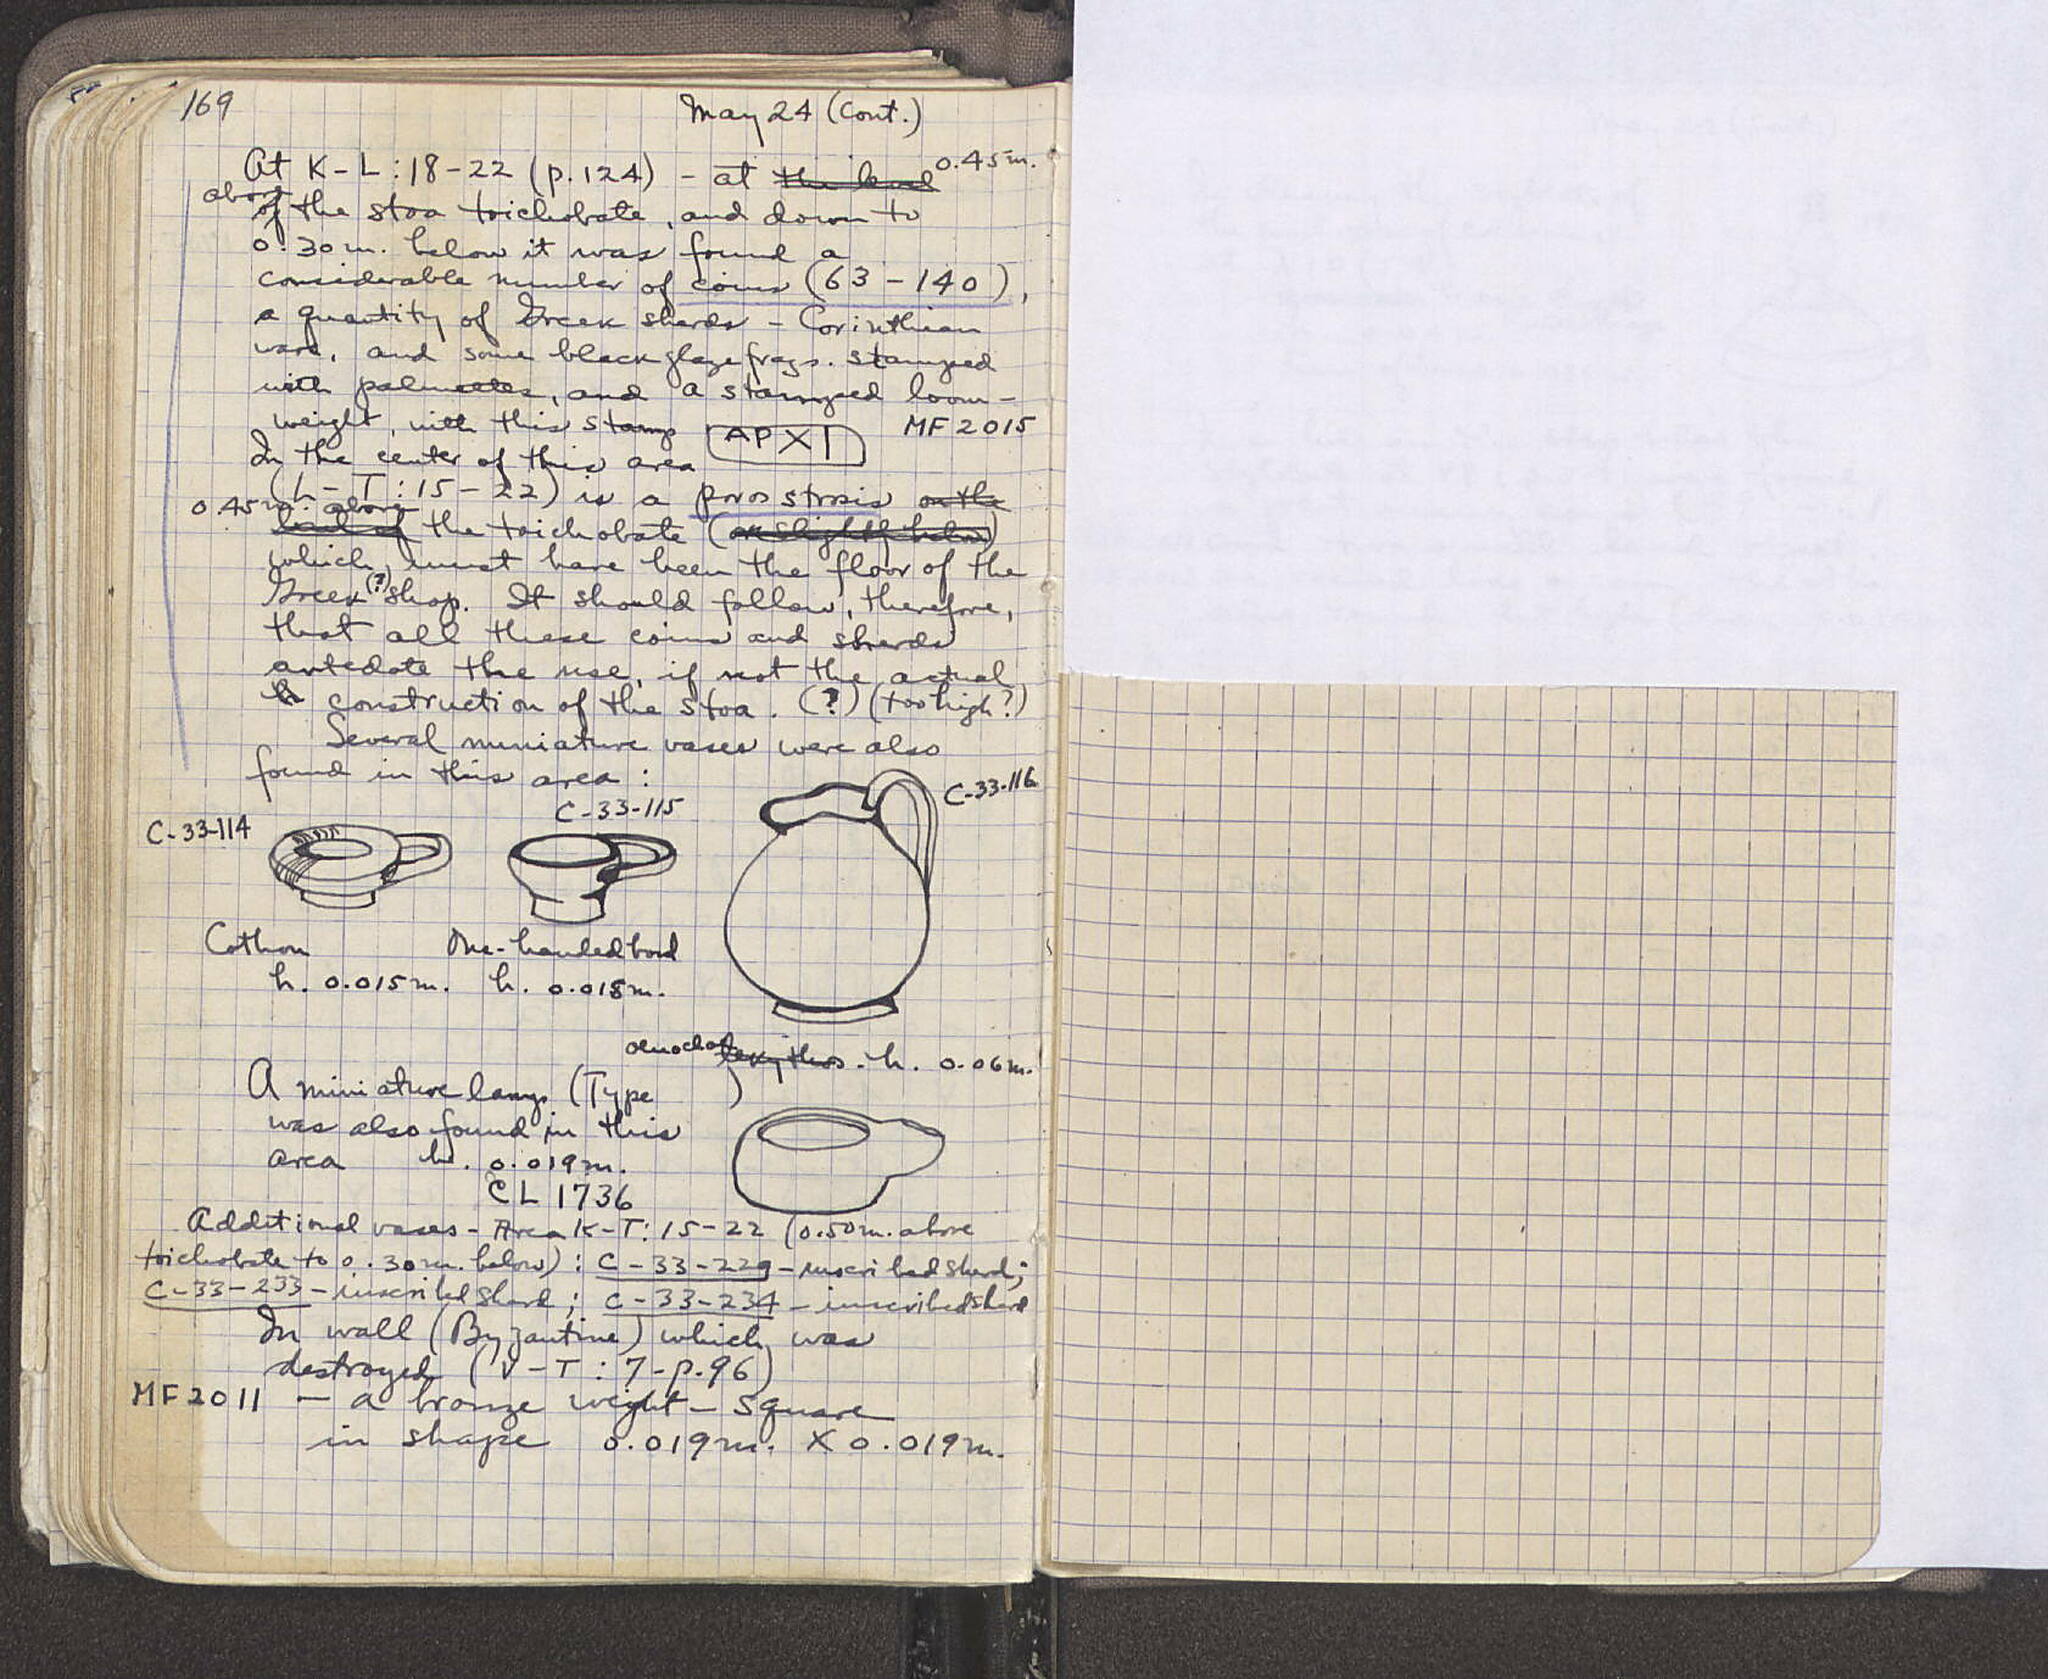 169
May 24 (Cont.)
At K-L:18-22 (p.124) - at the level 0.45m.
above
of the stoa toichobate, and down to
0.30m. below it was found a
considerable number of coins (63-140),
a quantity of Greek sherds - Corinthian
ware, and some black glaze frags. stamped
with palmettes, and a stamped loom-
weight, with this stamp APXI MF 2015
In the center of this area
(L-T:15-22) is a poros strosis on the
0.45m. above
level of the toichobate (or slightly below)
which must have been the floor of the
Greek (?) shop. It should follow, therefore,
that all these coins and sherds
antedate the use, if not the actual
construction of the stoa. (?) (too high?)
Several miniature vases were also
found in this area:
C-33-114
C-33-115
C-33-116
Cothon
h. 0.015m.
One-handled bowl
h. 0.018m.
oenochoe lekythos - h. 0.06m.
A miniature lamp (Type )
was also found in this
area h. 0.019m.
CL 1736
Additional vases - Area K-T:15-22 (0.50m. above
toichobate to 0.30m. below): C-33-229 - inscribed sherd;
C-33-233 - inscribed sherd; C-33-234 - inscribed sherd
In wall (Byzantine) which was
destroyed (V-T:7-p.96)
MF 2011 - a bronze weight - square
in shape 0.019m. X 0.019m.